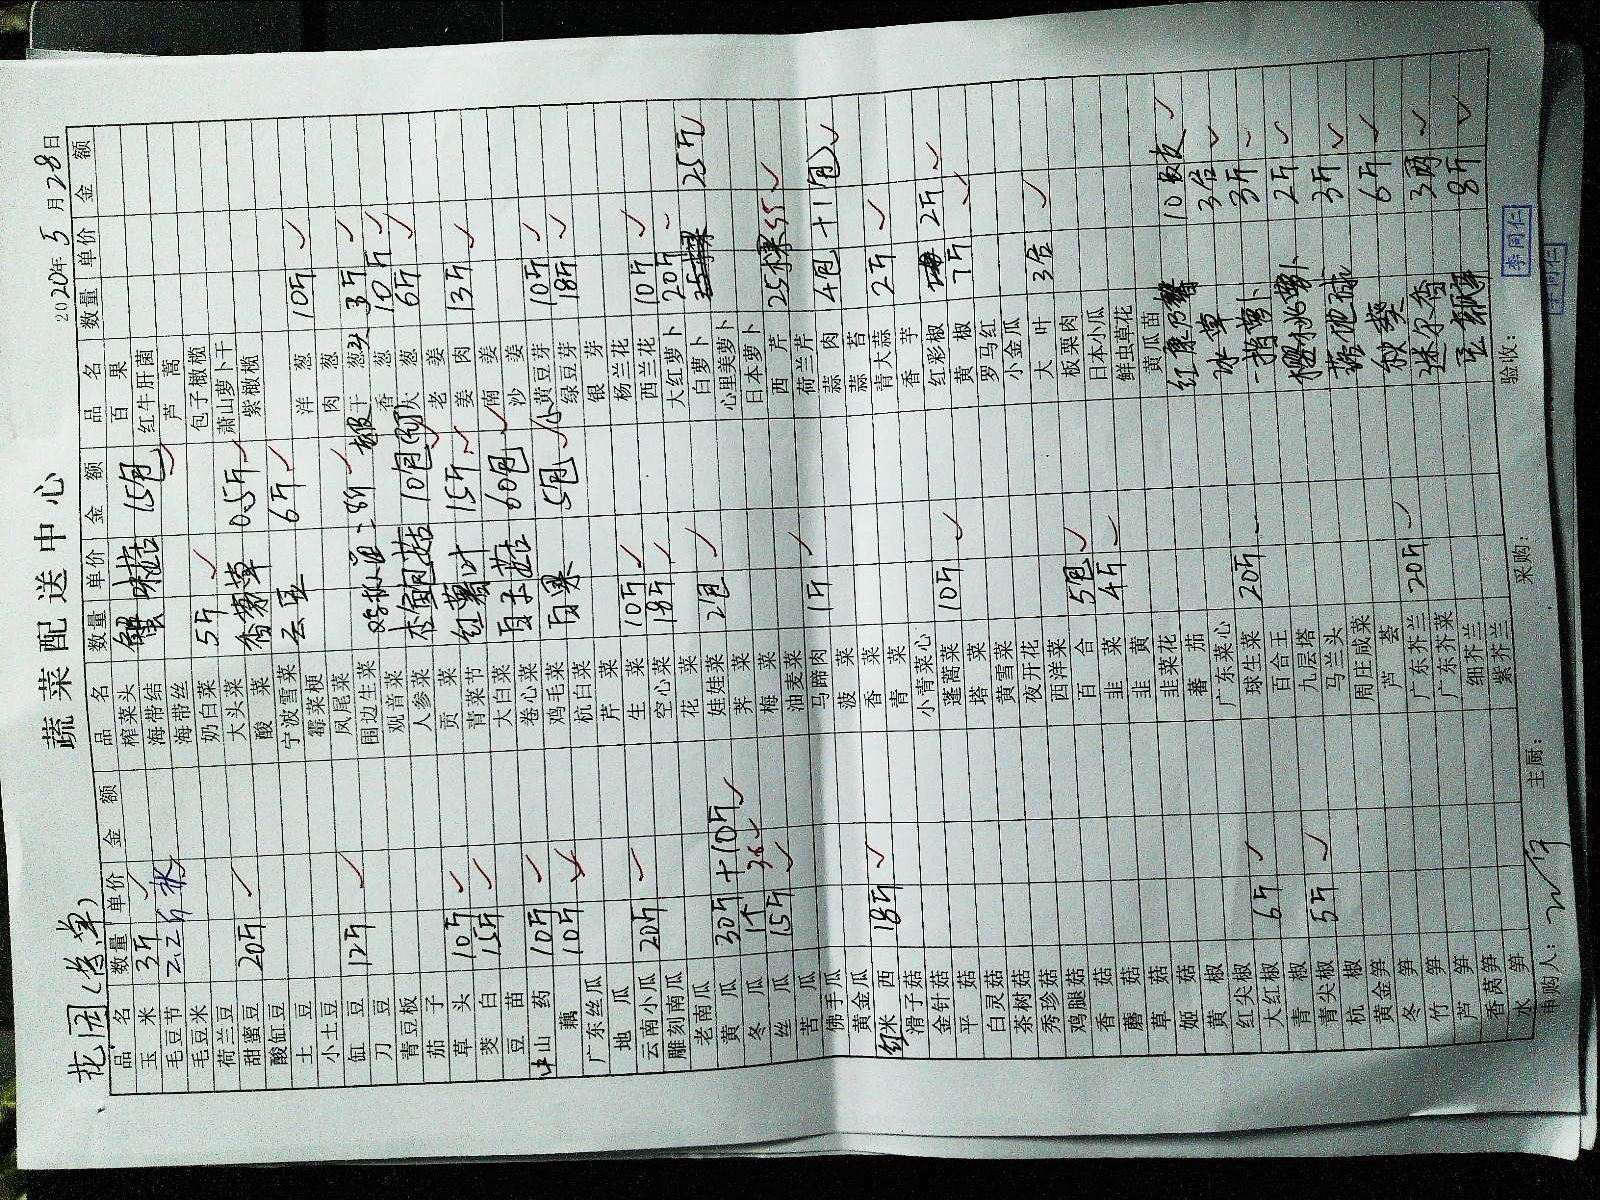 蔬菜配送中心
花园(
2020年5月28日
品名 数量 单价 金额 品名 数量 单价 金额 品名 数量 单价 金额
玉米 3斤
毛豆节 2.2斤
毛豆米
荷兰豆
甜蜜豆 20斤
酸缸豆
土豆
小土豆
缸豆 12斤
刀豆
青豆板
茄子
草头 10斤
茭白 15斤
豆苗
中山药 10斤
藕 10斤
广东丝瓜
地瓜
云南小瓜 20斤
雕刻南瓜
老南瓜
黄瓜 30斤+10斤
冬瓜 1个 36
丝瓜 15斤
苦瓜
佛手瓜
黄金瓜
红米西 18斤
滑子菇
金针菇
平菇
白灵菇
茶树菇
秀珍菇
鸡腿菇
香菇
蘑菇
草菇
姬菇
黄椒
红尖椒
大红椒 6斤
青椒
青尖椒 5斤
杭椒
黄金笋
冬笋
竹笋
芦笋
香莴笋
水笋
榨菜头 蟹味菇 15包
海带结
海带丝
奶白菜 5斤
大头菜 香茅草 0.5斤
酸菜
宁波雪菜 6斤
霉菜梗
凤尾菜
围边生菜
观音菜
人参菜 杏鲍菇 10包
贡菜
青菜节 红薯叶 15斤
大白菜
卷心菜 60包
鸡毛菜 白果 5包
杭白菜
芹菜
生菜 10斤
空心菜 18斤
花菜
娃娃菜 2包
荠菜
梅菜
油麦菜
马蹄肉 1斤
菠菜
香菜
青菜
小青菜心
蓬蒿菜 10斤
塔菜
黄雪菜
夜开花
西洋菜
百合 5包
韭菜 4斤
韭黄
韭菜花
蕃茄
广东菜心
球生菜 20斤
百合王
九层塔
马兰头
周庄咸菜
芦荟
广东芥兰 20斤
广东芥菜
细芥兰
紫芥兰
百果
红牛肝菌
芦蒿
包子橄榄
萧山萝卜干
紫橄榄
洋葱 10斤
肉葱
干葱头 3斤
香葱 10斤
大葱 6斤
老姜
姜肉 13斤
南姜
沙姜
黄豆芽 10斤
绿豆芽 18斤
银芽
杨兰花
西兰花 10斤
大红萝卜 20斤
白萝卜 25斤
心里美萝卜
日本萝卜
西芹 25棵 55
荷兰芹
蒜肉 4包+1包
蒜苔
青大蒜 2斤
香芋
红彩椒 2斤
黄椒 7斤
罗马红
小金瓜
大叶 3合
板栗肉
日本小瓜
鲜虫草花
黄瓜苗
10
冰草 3合
3斤
樱桃萝卜 2斤
3斤
秋葵 6斤
迷尔香 3两
8斤
申购人: 主厨: 采购: 验收:
李同仁
李同仁